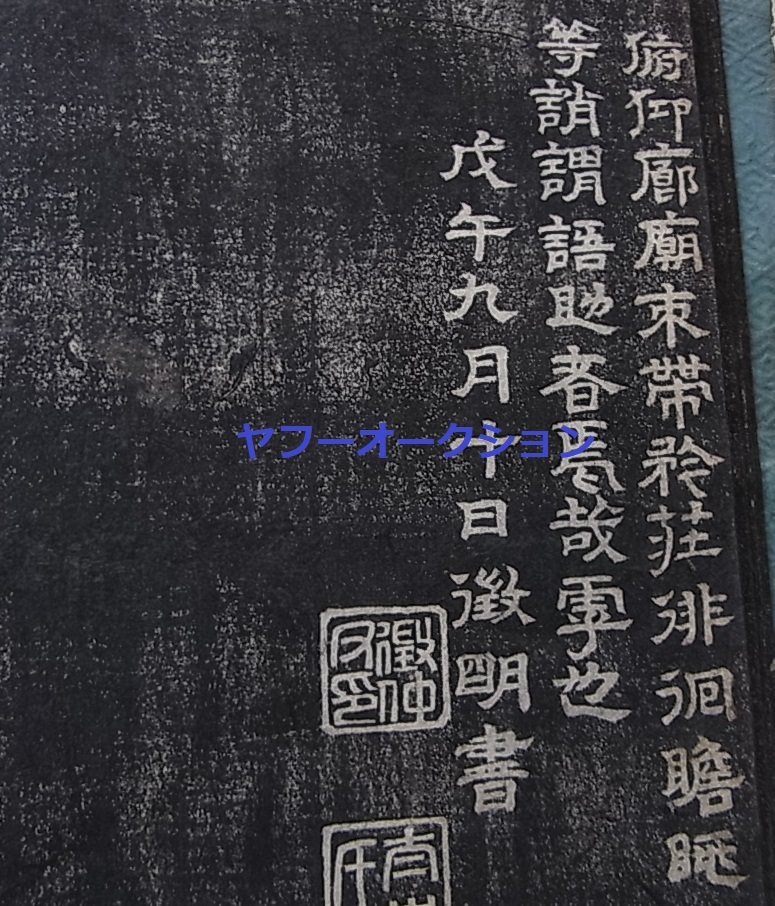 俯仰廊廟束帶矜莊徘徊瞻眺
等誚謂語助者焉哉乎也
戊午九月十日徵明書
徵仲父印
ヤフーオークション